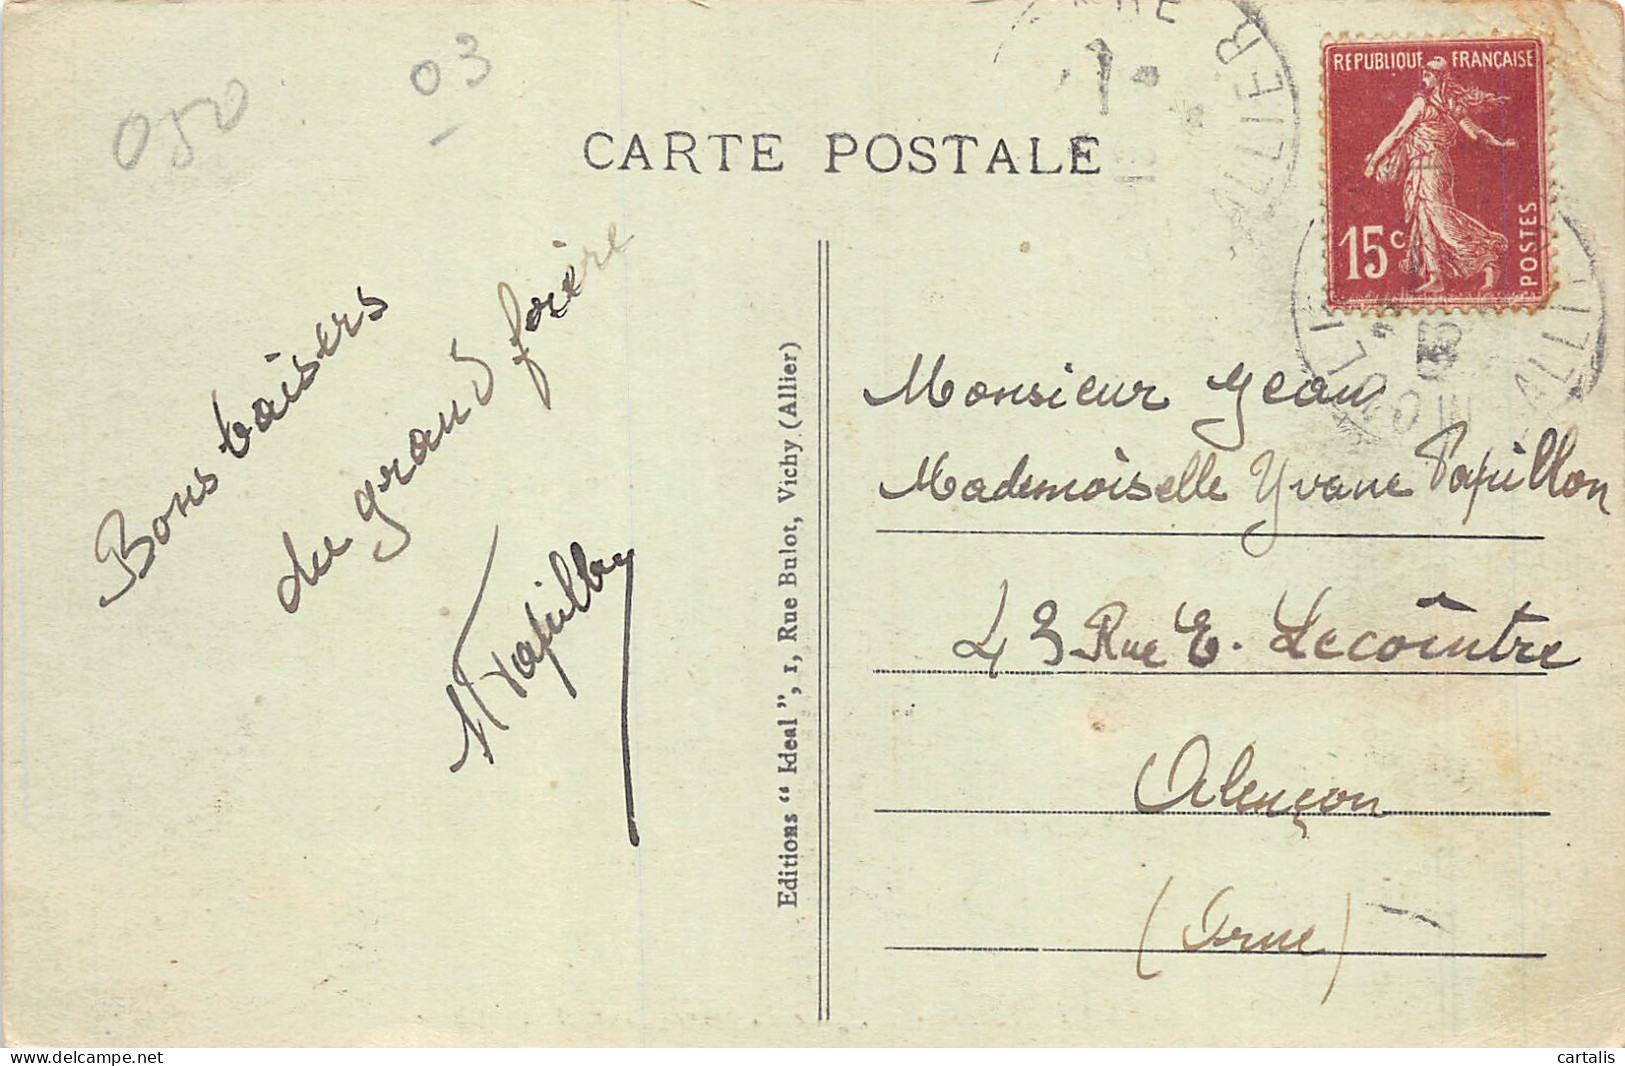 050
03
CARTE POSTALE
REPUBLIQUE FRANÇAISE
15c
POSTES
ALLIER
ALLIER
Bons baisers
du grand frère
Papillon
Editions “ Ideal ”, 1, Rue Bulot, Vichy (Allier)
Monsieur Jean
Mademoiselle Yvane Papillon
43 Rue E. Lecointre
Alençon
(Orne)
cartalis